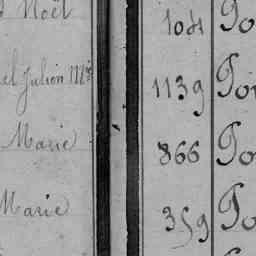 Noël 1041 Po
el Julien Mie 1139 Poi
Marie 866 Po
Marie 359 Po